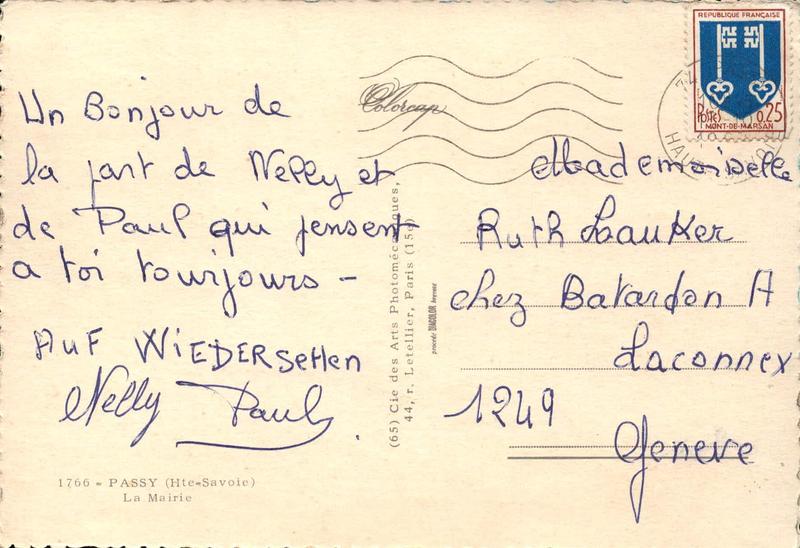 Un Bonjour de
la part de Nelly et
de Paul qui pensent
a toi toujours -
AUF WIEDERSEHEN
Nelly Paul
1766 - PASSY (Hte-Savoie)
La Mairie
Colorcap
(65) Cie des Arts Photomécaniques,
44, r. Letellier, Paris (15e)
procédé DIACOLOR
REPUBLIQUE FRANÇAISE
POSTES 0,25
MONT-DE-MARSAN
74
Mademoiselle
Ruth Lauker
chez Batardon A
Laconnex
1249
Geneve